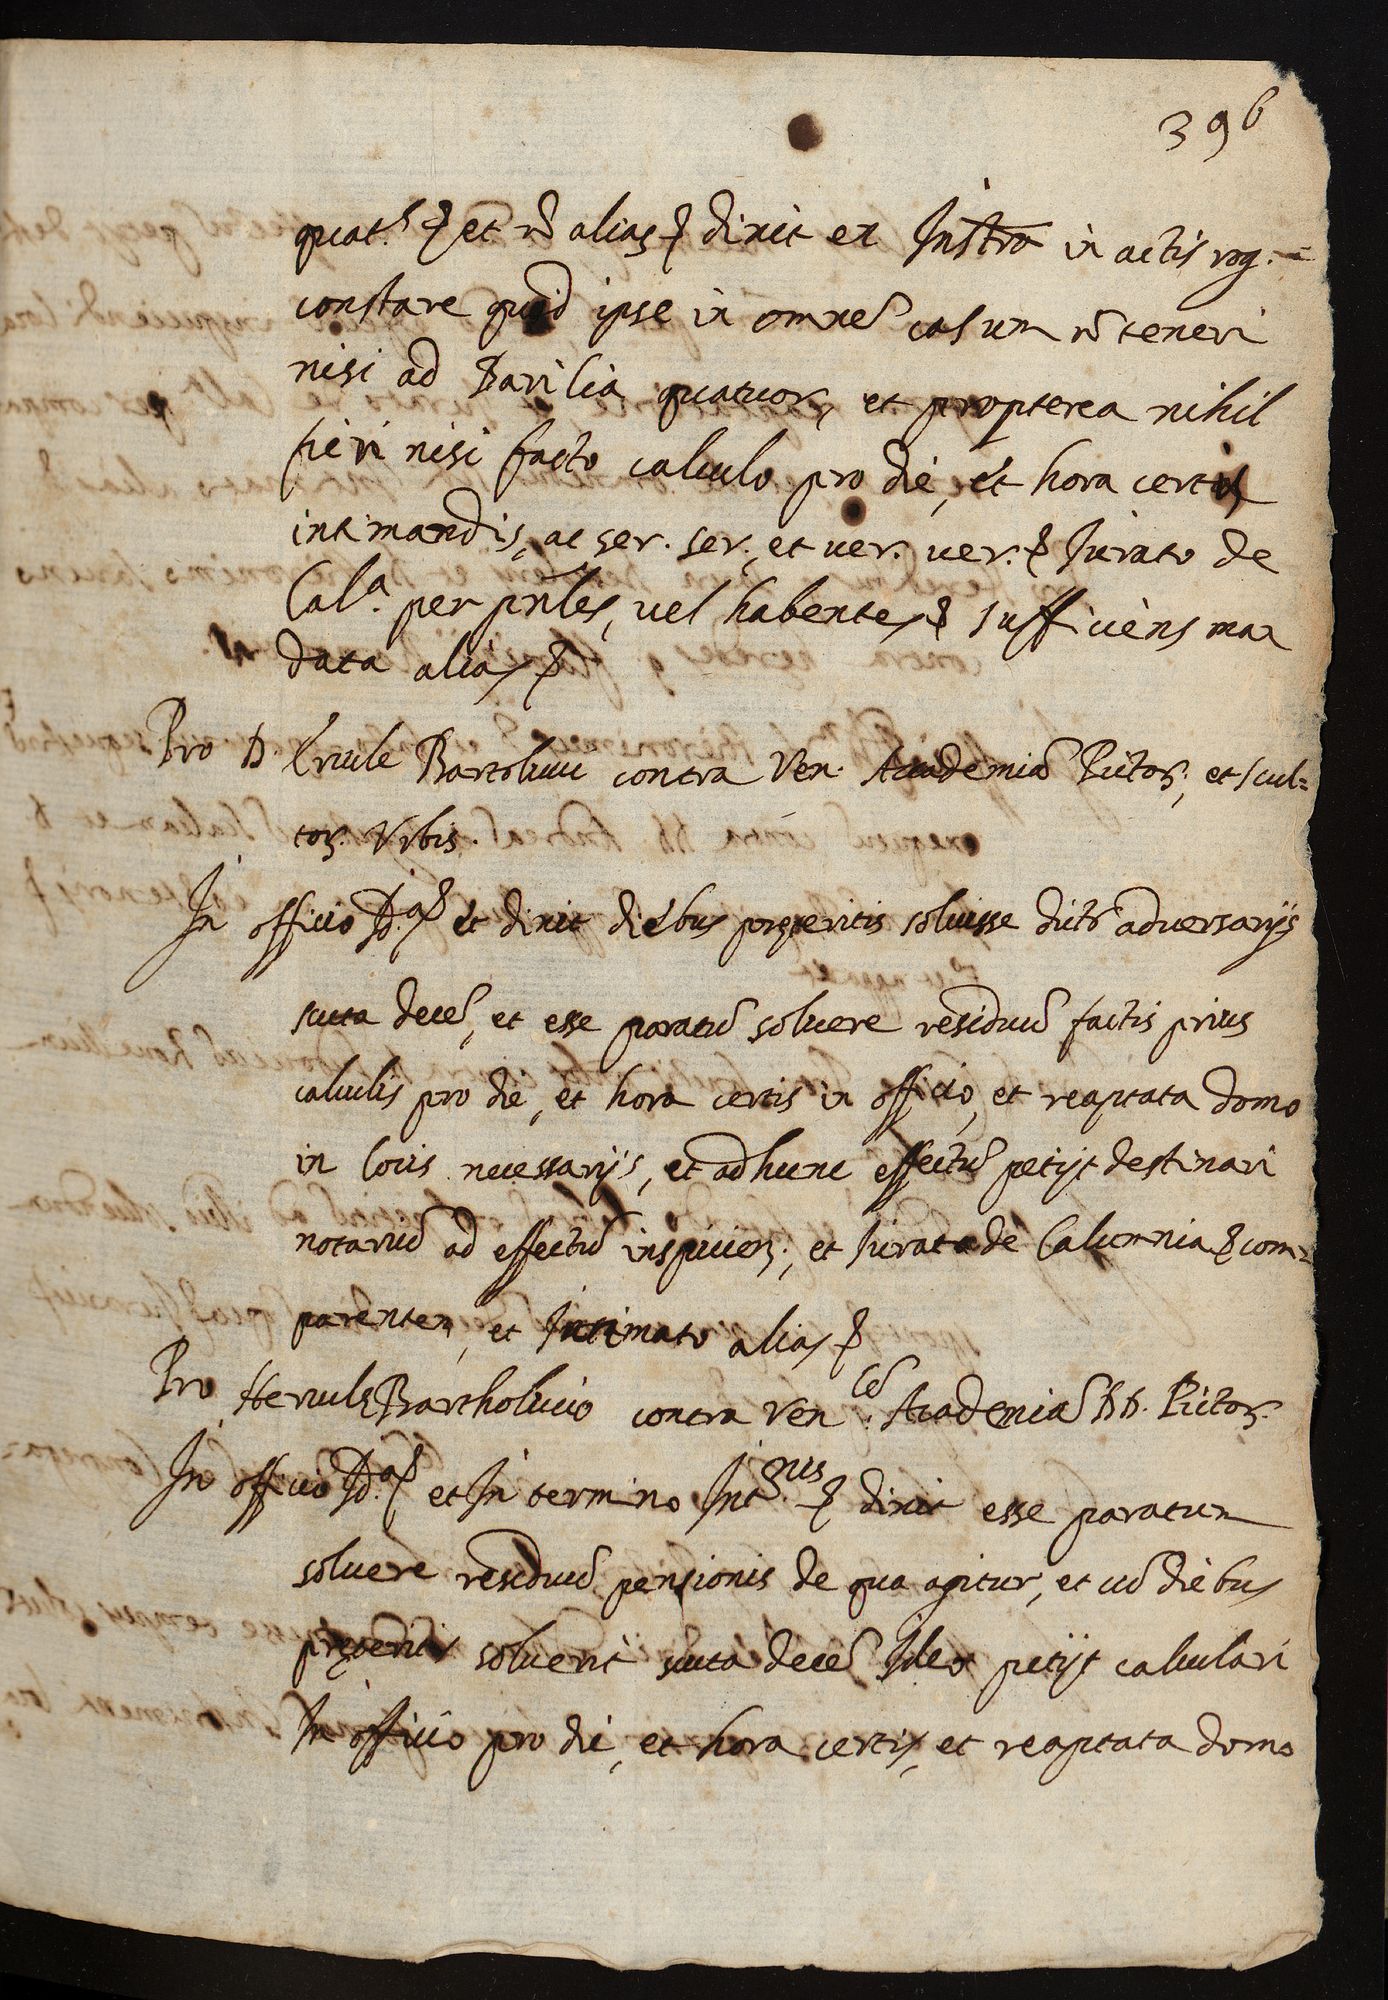 396
quat.s et alias dixit ex Instro in actis reg.
constare quod ipse in omnē casum nō teneri
nisi ad Barilia quatuor, et propterea nihil
fieri nisi facto calculo pro die, et hora certis
intimandis, ac ser. ser., et ver. ver. Iurato de
Cal.a per prńles, vel habentes sufficiens man
data alias
Pro D. Ercule Bartolucci contra Ven. Academiā Pictor., et Scul=
tor. Urbis.
In officio et dixit diebus preteritis soluisse adversarijs
scuta decē, et esse paratū solvere residuū factis prius
calculis pro die, et hora certis in officio, et reaptata domo
in locis necessarijs, et ad hunc effectū petijt destinari
notariū ad effectū inspicien., et Iurato de Calumnia com=
parenten, et Intimato alias
Pro Hercule Bartholucio contra Ven.cē Academiā DD. Pictor.
In officio et In termino dixit esse paratum
solvere residuū pensionis de qua agitur, et cū diebus
pręteritis solverit scuta decē Ideo petijt calculari
In officio pro die, et hora certis, et reaptata domo